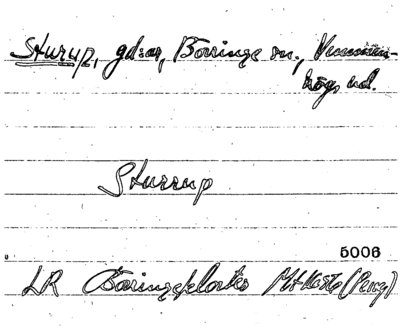 Sturup, gdar, Börringe sn., Vemmen-
högs hd.
Sturrup
5006
LR Börringekloster